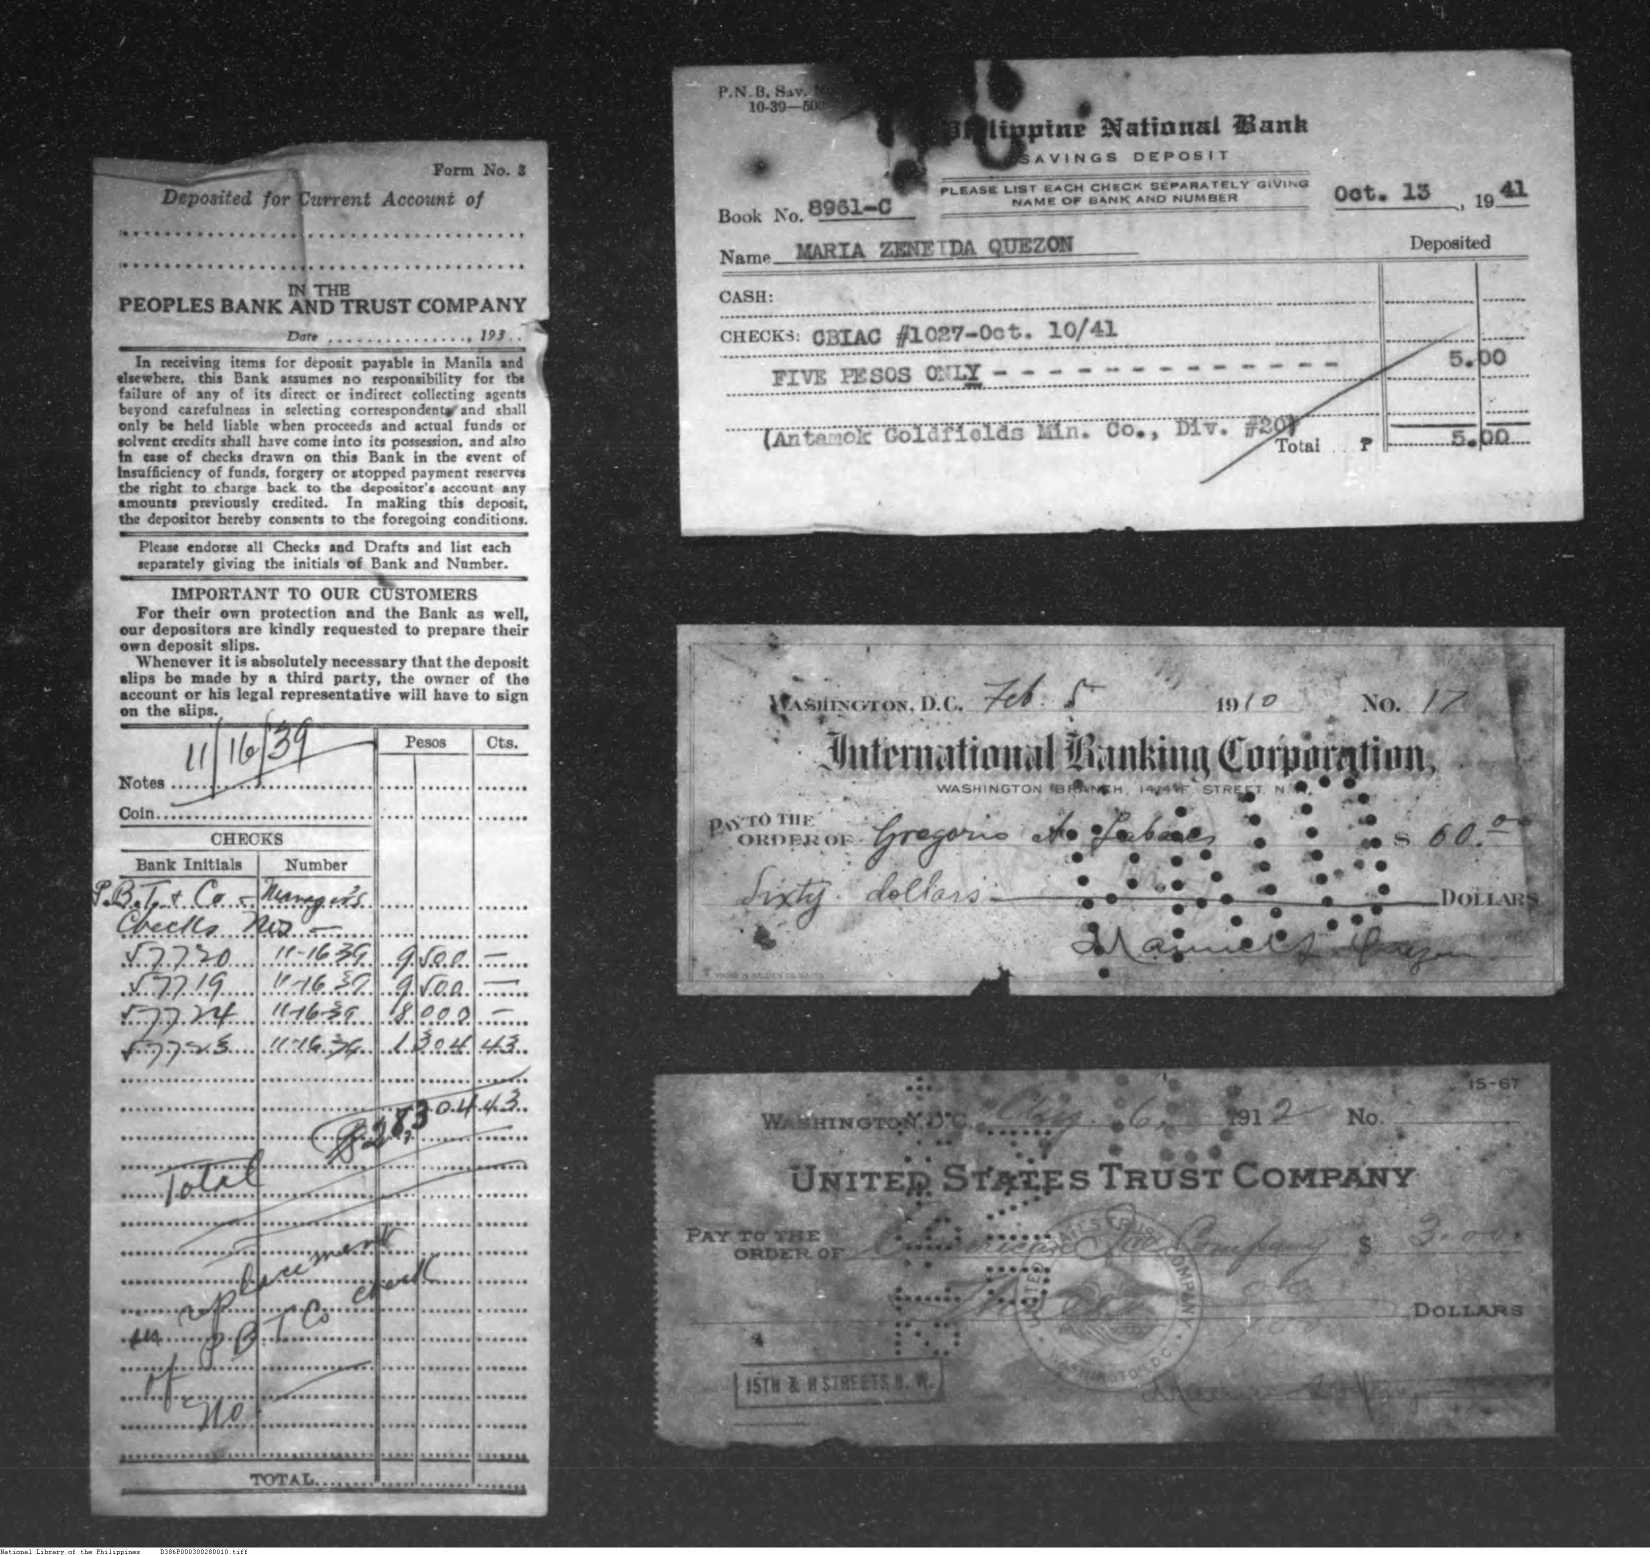 Form No. 3
Deposited for Current Account of
IN THE
PEOPLES BANK AND TRUST COMPANY
Date ..............., 193..
In receiving items for deposit payable in Manila and
elsewhere, this Bank assumes no responsibility for the
failure of any of its direct or indirect collecting agents
beyond carefulness in selecting correspondents and shall
only be held liable when proceeds and actual funds or
solvent credits shall have come into its possession, and also
in case of checks drawn on this Bank in the event of
insufficiency of funds, forgery or stopped payment reserves
the right to charge back to the depositor's account any
amounts previously credited. In making this deposit,
the depositor hereby consents to the foregoing conditions.
Please endorse all Checks and Drafts and list each
separately giving the initials of Bank and Number.
IMPORTANT TO OUR CUSTOMERS
For their own protection and the Bank as well,
our depositors are kindly requested to prepare their
own deposit slips.
Whenever it is absolutely necessary that the deposit
slips be made by a third party, the owner of the
account or his legal representative will have to sign
on the slips.
11/16/39
Pesos Cts.
Notes
Coin
CHECKS
Bank Initials Number
P.B.T. & Co - Manager's
Checks Nos -
57720 11-16-39 9 500 -
57719 11-16-39 9 500 -
57724 11-16-39 8 000 -
57723 11-16-39 1 304 43
28,304.43
Total
in replacement
of P B T Co check
No.
TOTAL
P.N.B. Sav.
10-39—500
Philippine National Bank
SAVINGS DEPOSIT
PLEASE LIST EACH CHECK SEPARATELY GIVING
NAME OF BANK AND NUMBER
Book No. 8961-C
Oct. 13, 1941
Name MARIA ZENEIDA QUEZON
Deposited
CASH:
CHECKS: CBIAC #1027-Oct. 10/41
FIVE PESOS ONLY - - - - - - - - - - - - - - 5.00
(Antamok Goldfields Min. Co., Div. #20)
Total .. ₱ 5.00
WASHINGTON, D.C. Feb. 5 1910 NO. 17
International Banking Corporation,
WASHINGTON BRANCH, 1414 F. STREET, N.W.
PAY TO THE
ORDER OF Gregorio A. $ 60.00
Sixty dollars DOLLARS
Manuel L. Quezon
15-67
WASHINGTON, D.C. 6, 1912 No.
UNITED STATES TRUST COMPANY
PAY TO THE
ORDER OF American Company $ 3.00
Three DOLLARS
UNITED STATES TRUST COMPANY
WASHINGTON D.C.
15TH & H STREETS N. W.
National Library of the Philippines D386P000300280010.tiff